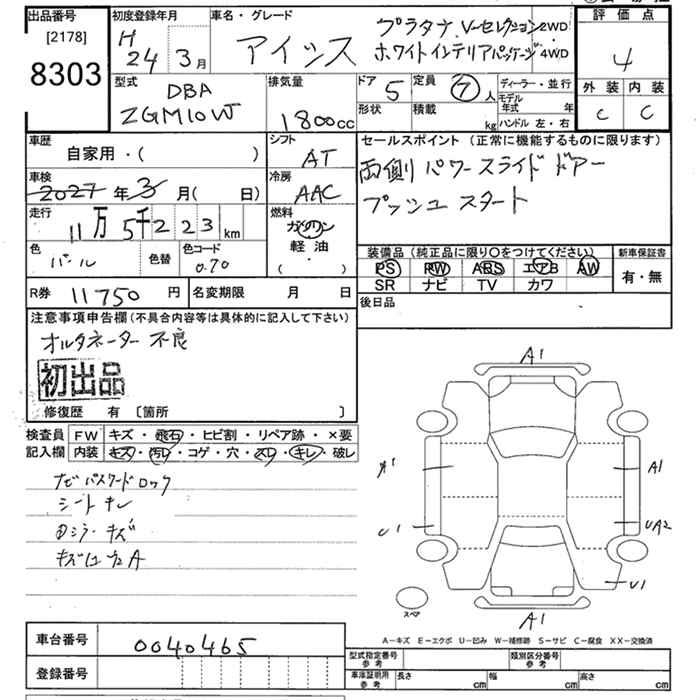 出品番号
[2178]
8303
初度登録年月
H
24 3月
車名・グレード
アイシス
プラタナ Vーセレクション 2WD
ホワイトインテリアパッケージ 4WD
評価点
4
外装 内装
C C
型式
DBA
ZGM10W
排気量
1800cc
ドア 5
形状
定員 ⑦人
積載 kg
ディーラー・並行
モデル年式 年
ハンドル 左・右
車歴
自家用・( )
シフト
AT
セールスポイント (正常に機能するものに限ります)
両側 パワースライド ドアー
プッシュ スタート
車検
2027年 3月( 日)
冷房
AAC
走行
11万5千223 km
燃料
ガソリン
軽油
( ・ )
色
パール
色替
色コード
070
装備品 (純正品に限り〇をつけてください)
PS PW ABS エアB AW
SR ナビ TV カワ
新車保証書
有・無
R券 11750 円
名変期限 月 日
後日品
注意事項申告欄(不具合内容等は具体的に記入して下さい)
オルタネーター 不良
初出品
修復歴 有 〔箇所 〕
検査員
記入欄
FW キズ・飛石・ヒビ割・リペア跡・×要
内装 キズ・汚レ・コゲ・穴・スレ・キレ・破レ
ナビ パスワードロック
シート キレ
キズ
A1
A1
A1
U1
UA2
U1
スペア
A1
A-キズ E-エクボ U-凹み W-補修跡 S-サビ C-腐食 XX-交換済
車台番号
0040465
登録番号
型式指定番号
参考
類別区分番号
参考
車庫証明用
参考
長さ cm
幅 cm
高さ cm